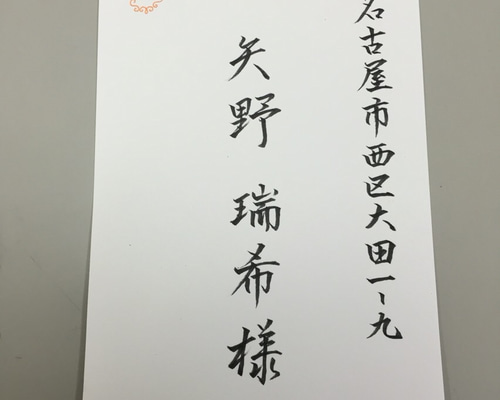 名古屋市西区大田一ー九
矢野 瑞希様